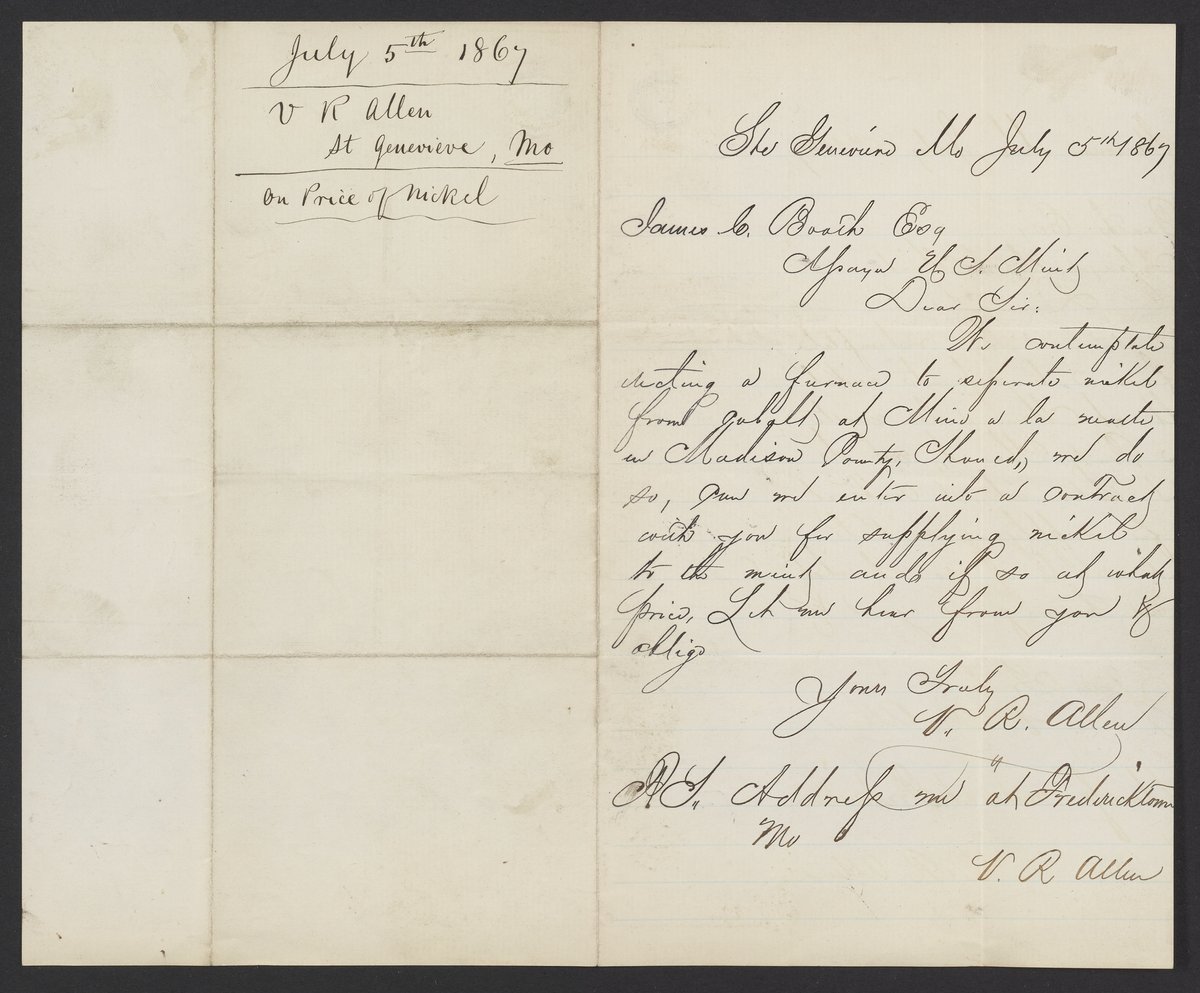 July 5th 1867
V R Allen
St Genevieve, Mo
On Price of Nickel
Ste Genevieve Mo July 5th 1867
James C. Booth Esq
Assayer U. S. Mint
Dear Sir:
We contemplate
erecting a furnace to seperate nickel
from cobalt at Mine a la motte
in Madison County, Should, we do
so, can we enter into a contract
with you for supplying nickel
to the mint and if so at what
price, Let me hear from you &
oblige
Yours Truly
V. R. Allen
P. S. Address me "at Fredericktown
Mo
V. R Allen